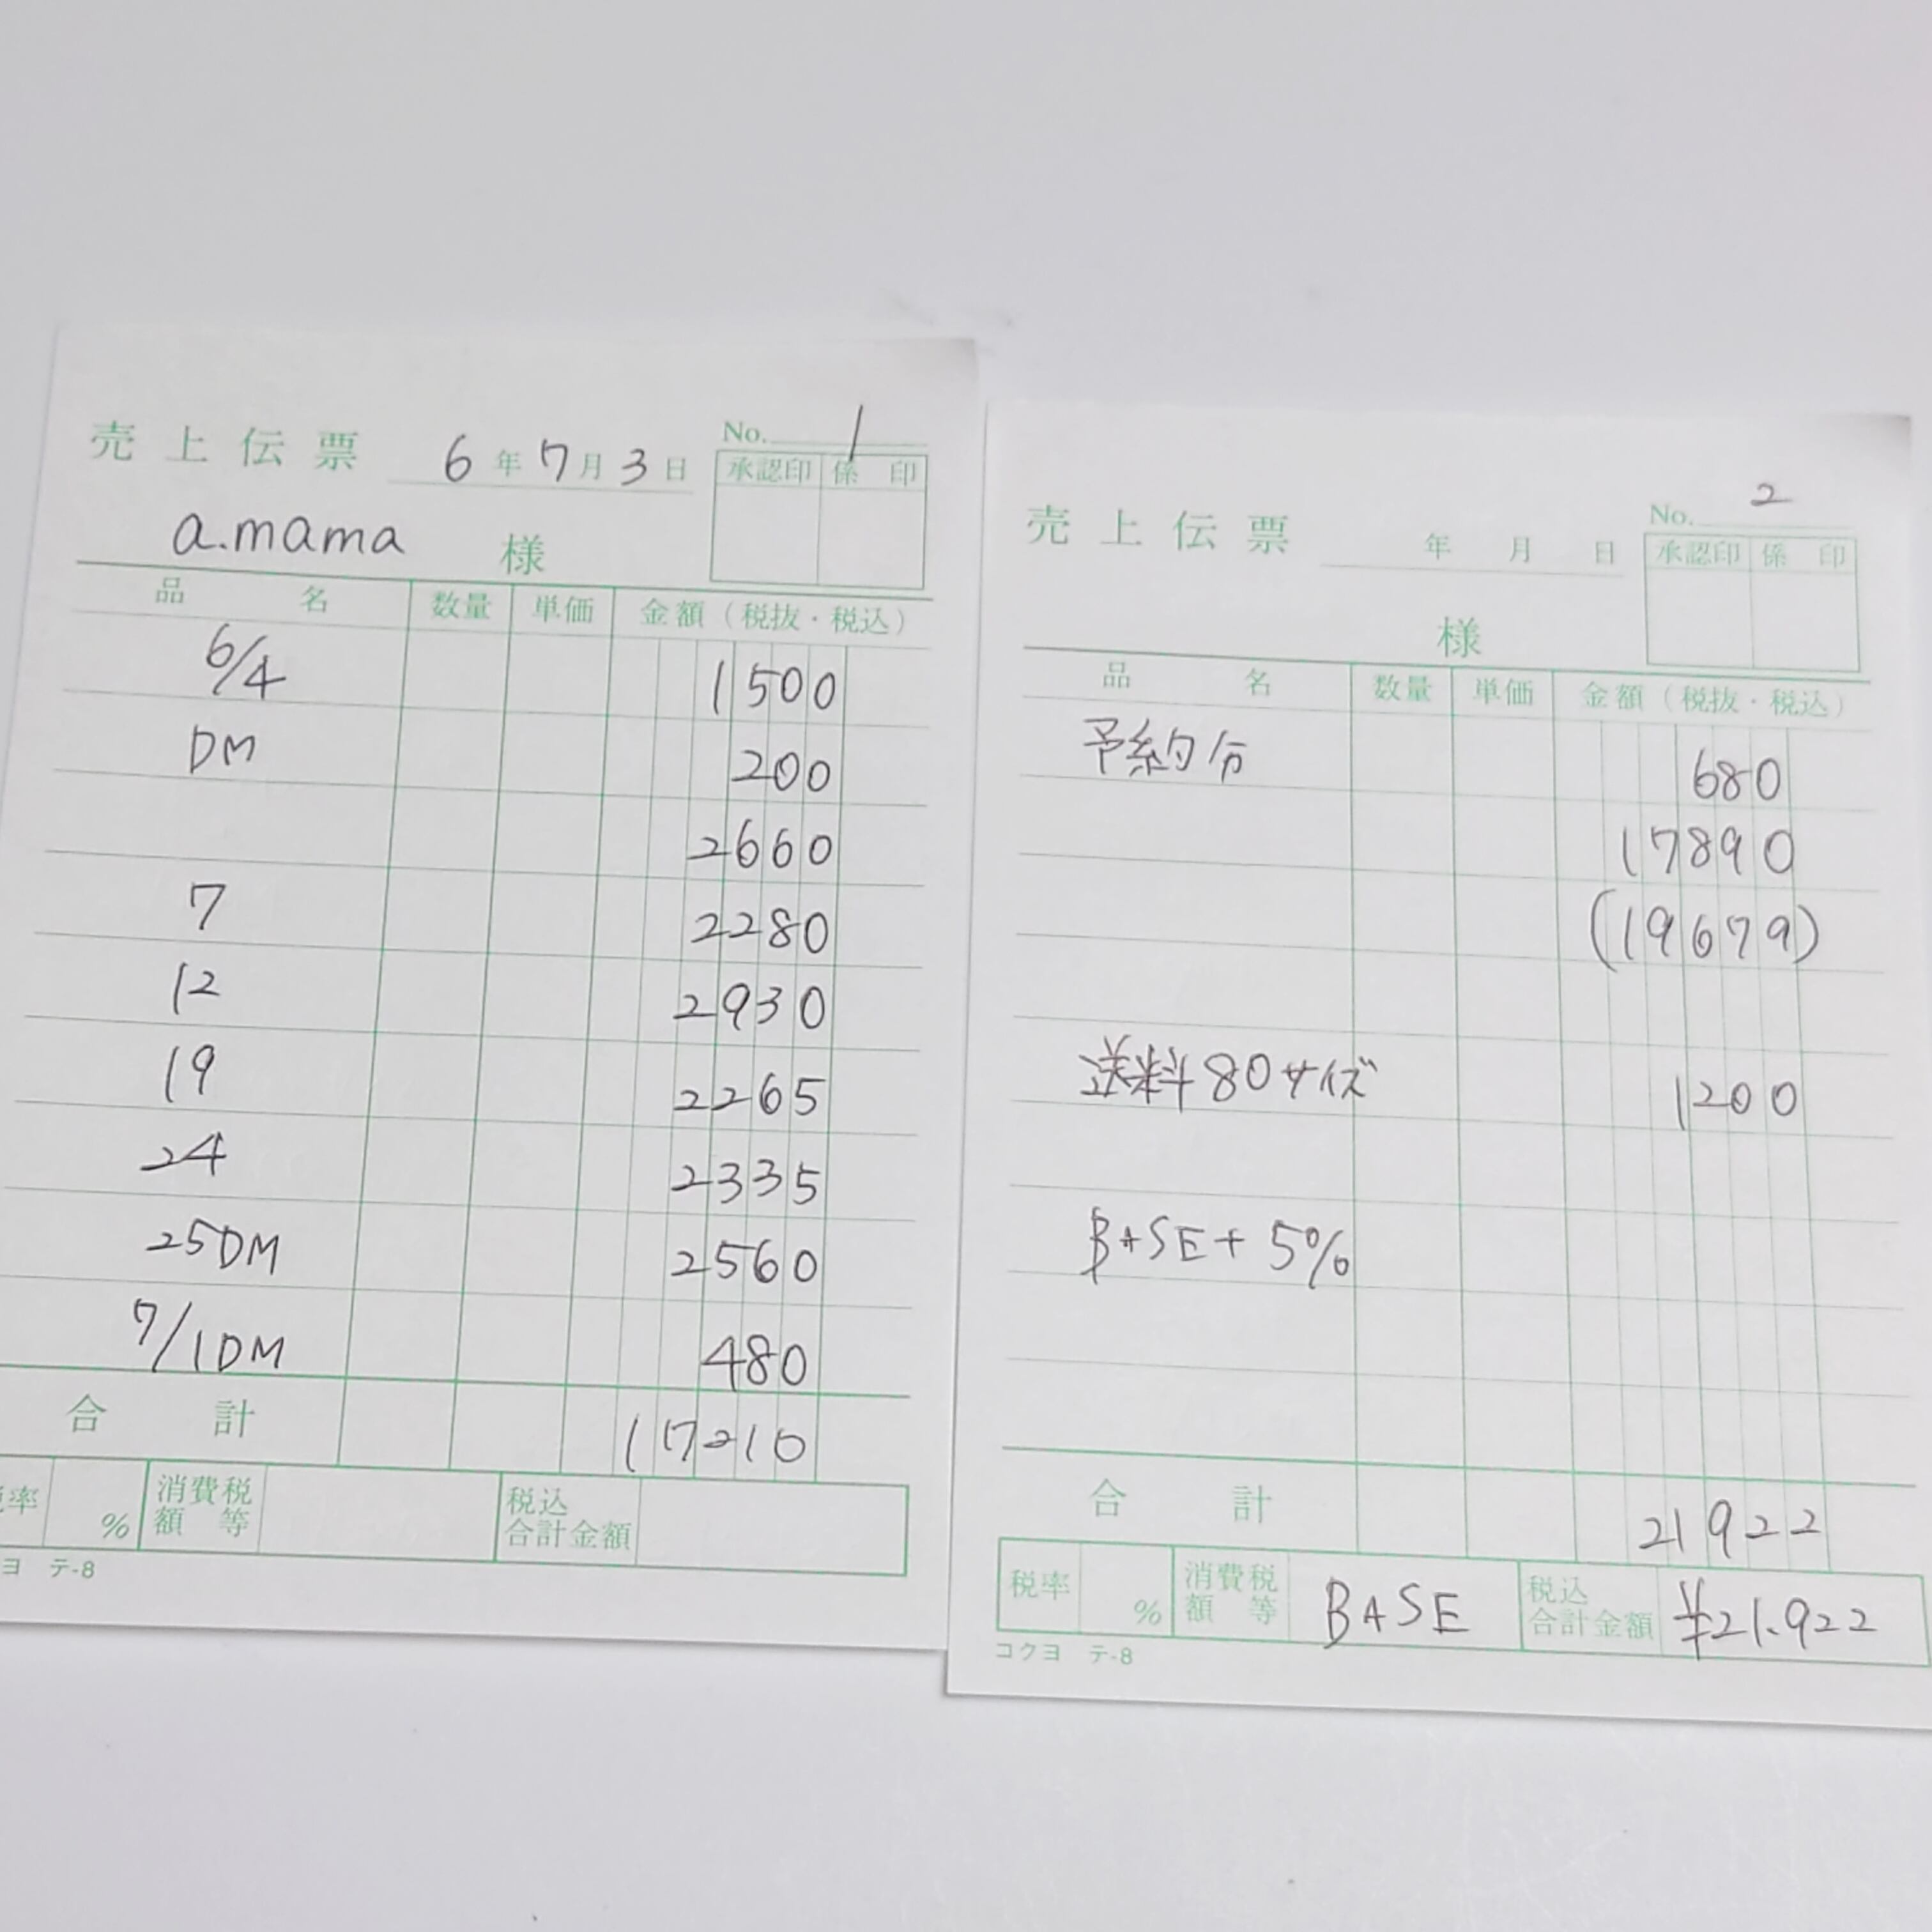 売上伝票 6年7月3日 No. 1
承認印 係印
a.mama 様
品名 数量 単価 金額(税抜・税込)
6/4 1500
DM 200
2660
7 2280
12 2930
19 2265
24 2335
25DM 2560
7/1DM 480
合計 17210
率 % 消費税額等 税込合計金額
ヨ テ-8
売上伝票 年 月 日 No. 2
承認印 係印
様
品名 数量 単価 金額(税抜・税込)
予約分 680
17890
(19679)
送料80サイズ 1200
BASE+5%
合計 21922
税率 % 消費税額等 BASE 税込合計金額 ¥21.922
コクヨ テ-8